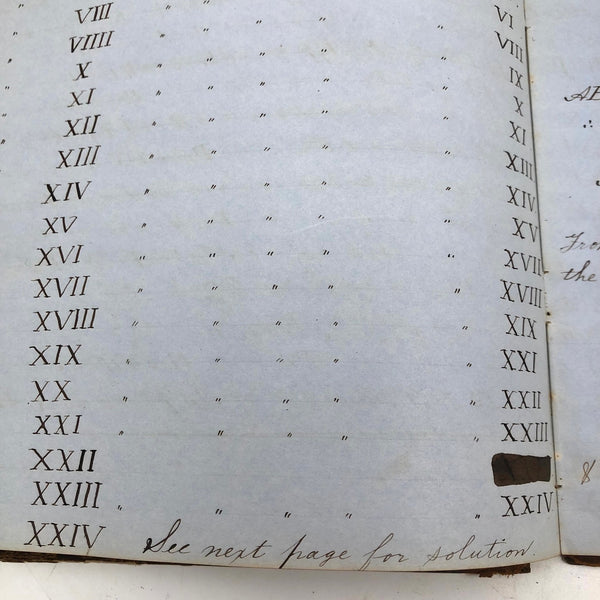 VIII " " " " VI
VIIII " " " " VIII
X " " " " IX
XI " " " " X
XII " " " " XI
XIII " " " " XIII
XIV " " " " XIV
XV " " " " XV
XVI " " " " XVII
XVII " " " " XVIII
XVIII " " " " XIX
XIX " " " " XXI
XX " " " " XXII
XXI " " " " XXIII
XXII
XXIII " " " " XXIV
XXIV See next page for solution.
∴
the
8